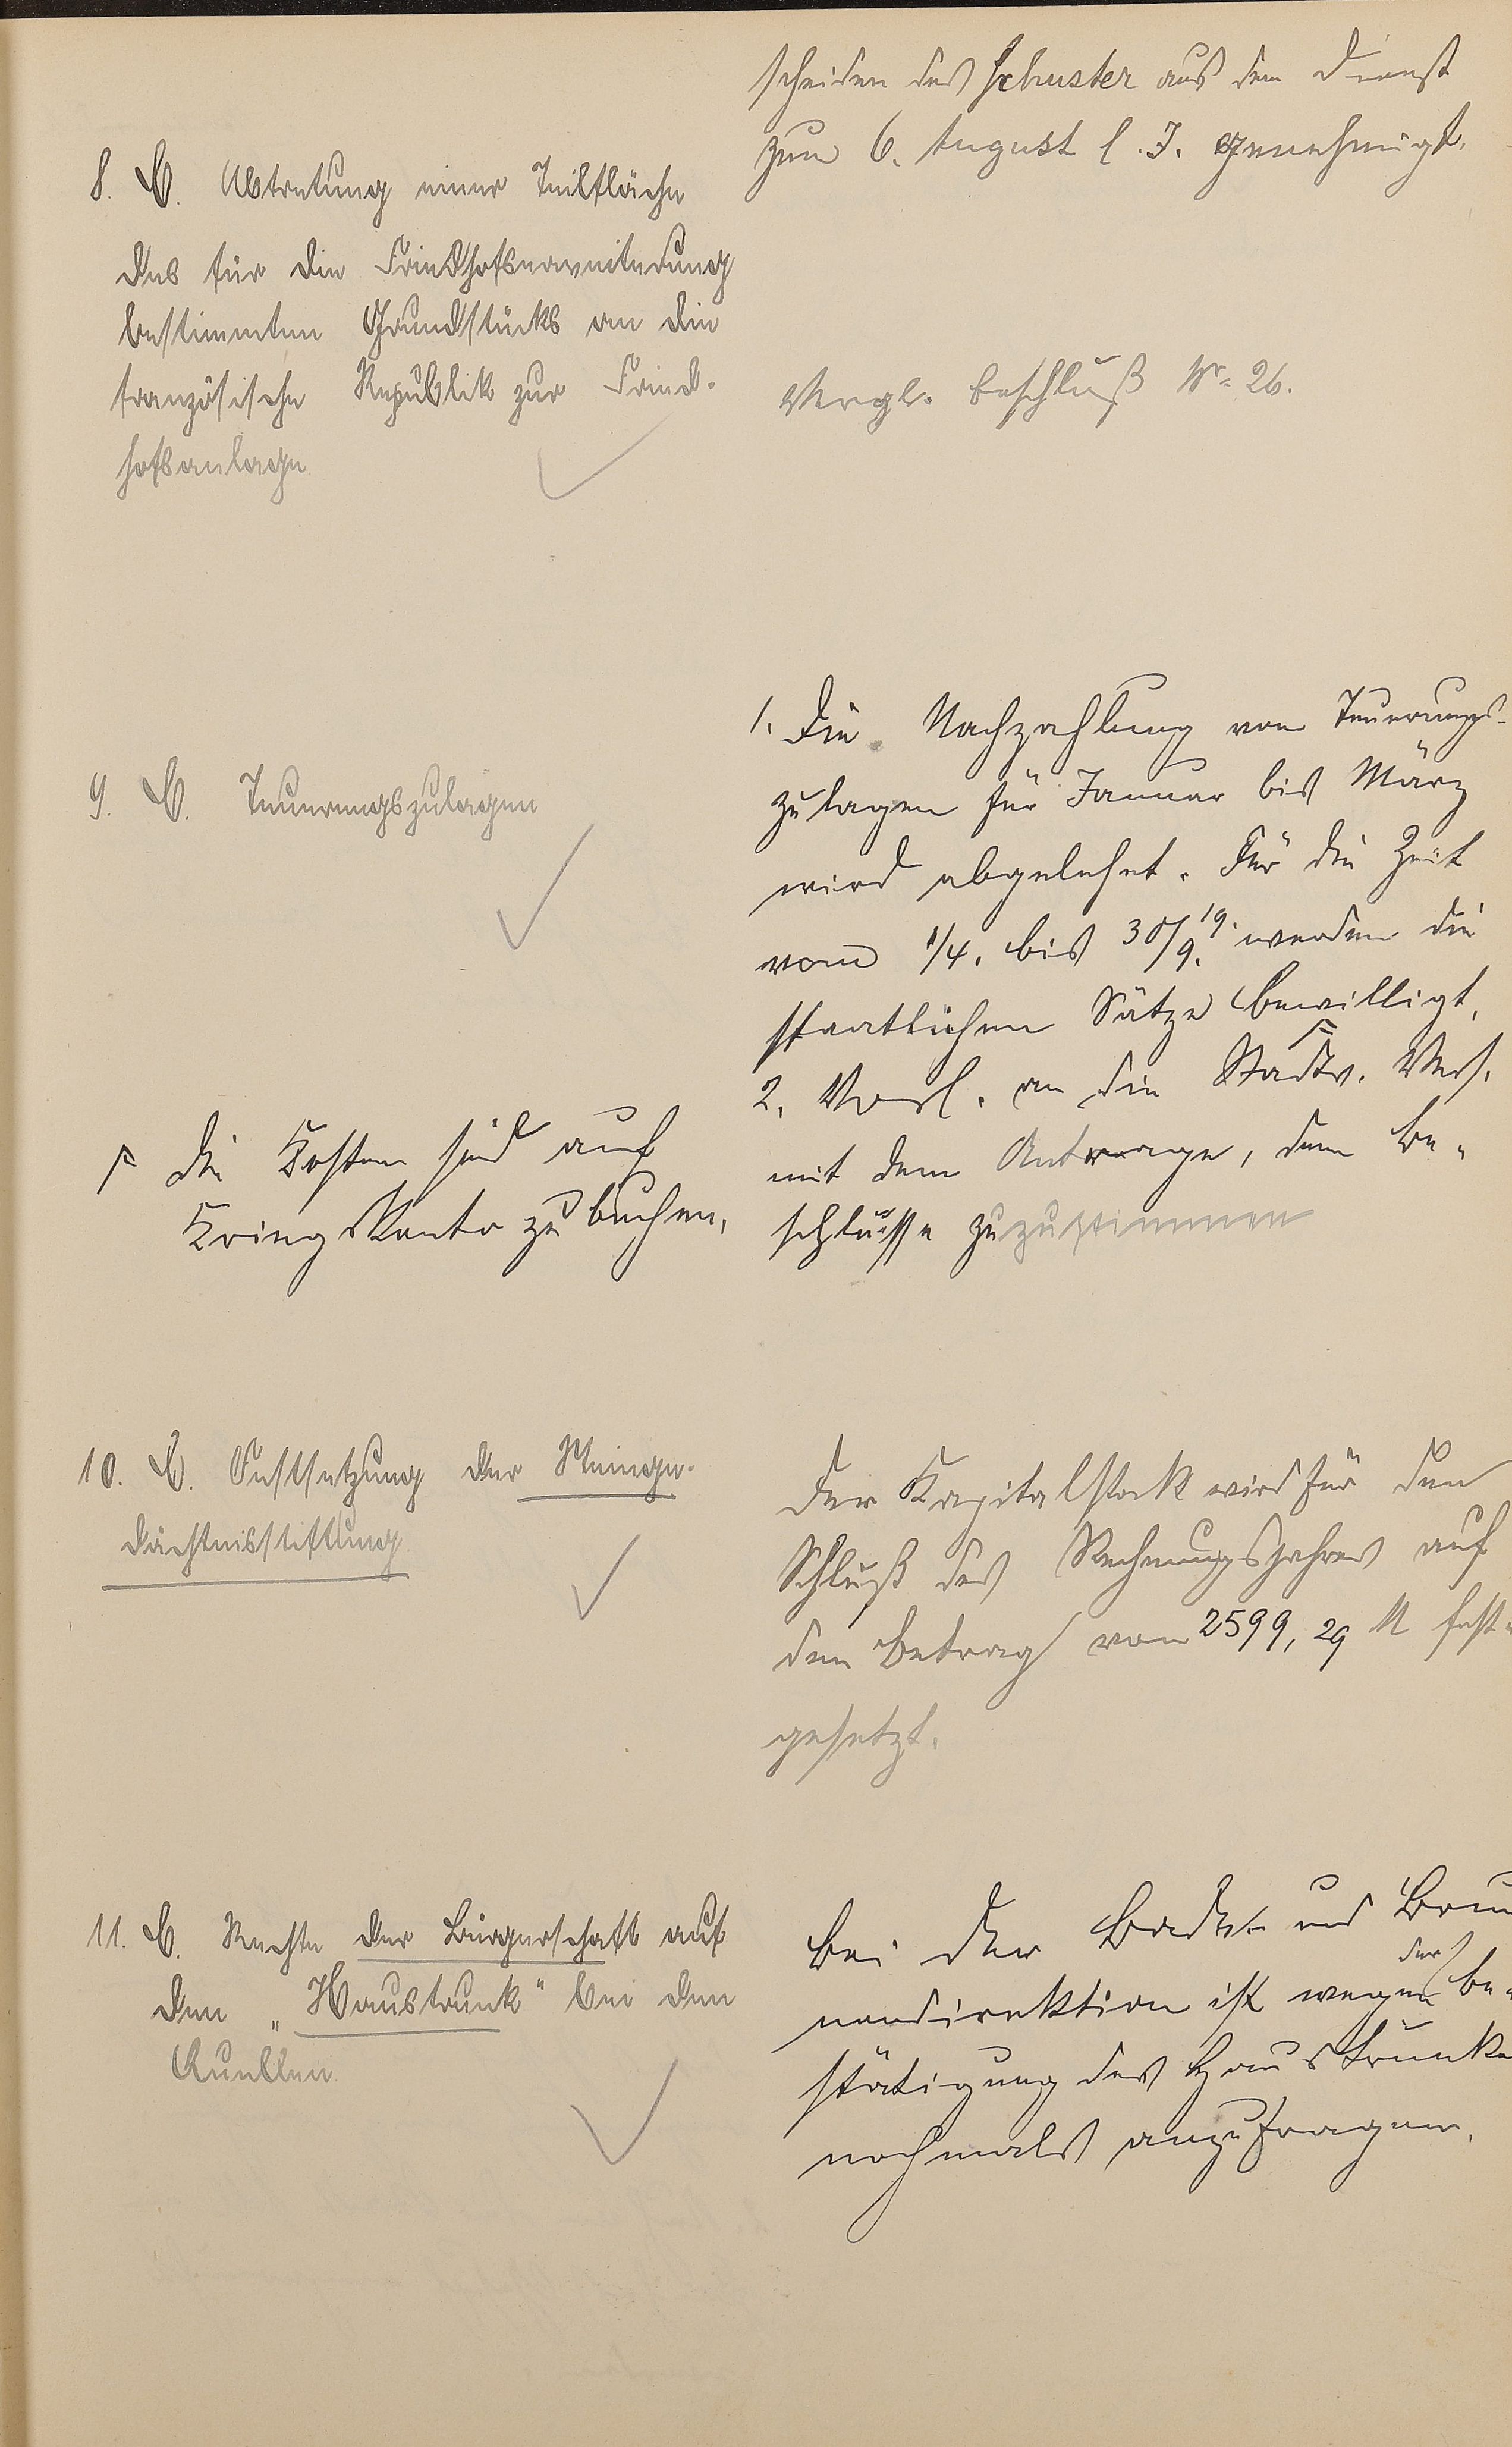 scheiden des Schuster aus dem Dienst
zum 6. August l. J. genehmigt.
8. C. Abtretung einer Teilfläche
des für die Friedhofserweiterung
bestimmten Grundstücks an die
französische Republik zur Fried-
hofsanlage
Vergl. Beschluß Nr. 26.
9. C. Teuerungszulagen
1. Die Nachzahlung von Teuerungs-
zulagen für Januar bis März
wird abgelehnt. Für die Zeit
vom 1/4. bis 30/9. 19. werden die
staatlichen Sätze bewilligt,
2. Vorl. an die Stadtv. Vers.
mit dem Antrage, dem Be-
schlusse zuzustimmen
┌ Die Kosten sind auf
Kriegskonto zu buchen,
10. C. Festsetzung der
dächtnisstiftung
Der Kapitalstock wird für den
Schluß des Rechnungsjahres auf
den Betrag von 2599,29 M fest-
gesetzt.
11. C. Rechte der Bürgerschaft auf
den „Haustrunk" bei den
Quellen.
Bei der Bade- und Brun
nendirektion ist wegen der Be-
stätigung des Haustrunks
nochmals anzufragen.